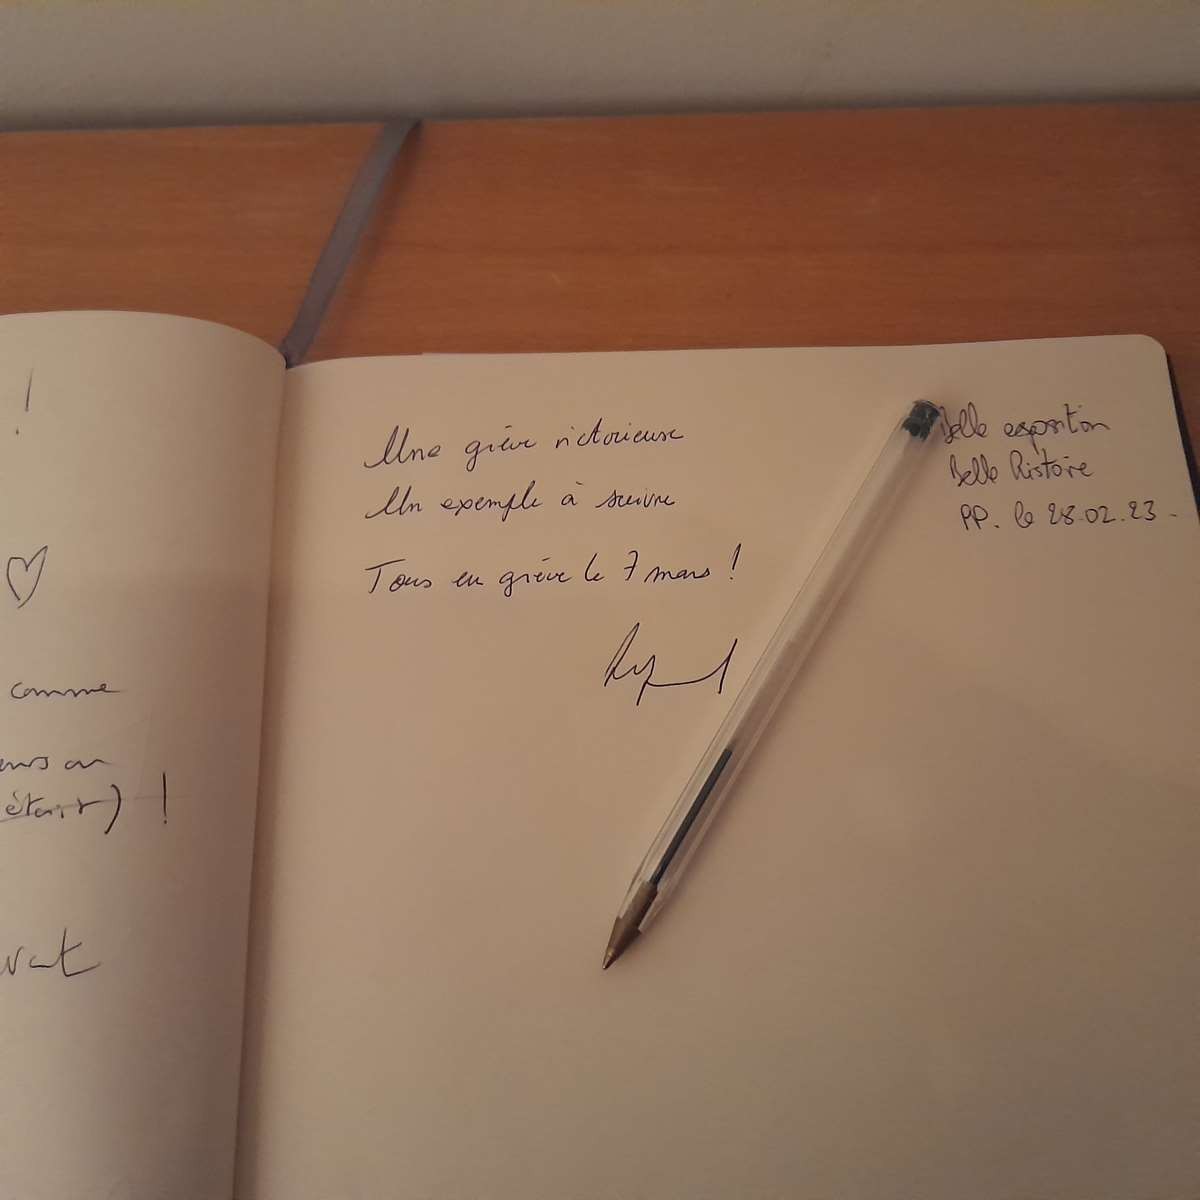 !
comme
on
étant) !
Une grève victorieuse
Un exemple à suivre
Tous en grève le 7 mars !
Belle exposition
Belle Histoire
PP. le 28.02.23.